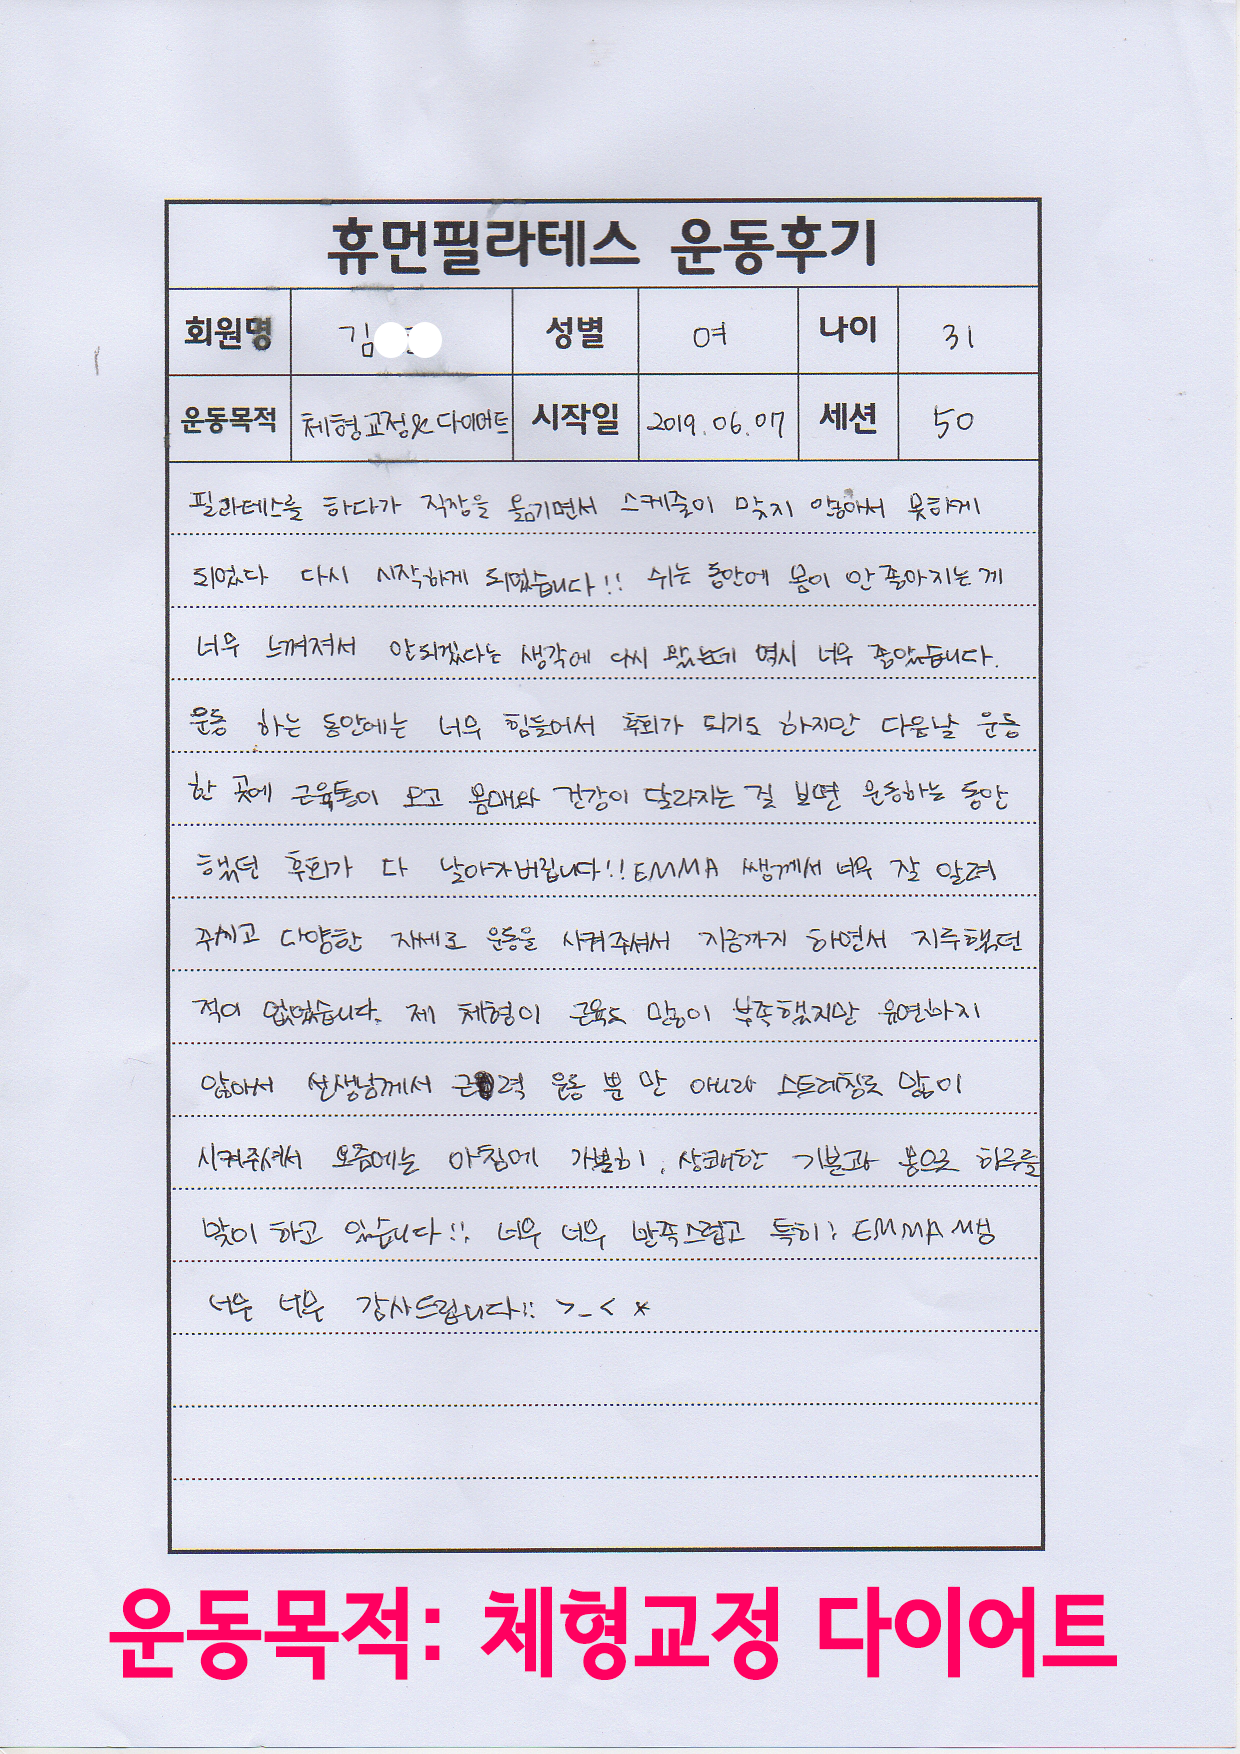 휴먼필라테스 운동후기
회원명 김 성별 여 나이 31
운동목적 체형교정&다이어트 시작일 2019.06.07 세션 50
필라테스를 하다가 직장을 옮기면서 스케줄이 맞지 않아서 못하게
되었다 다시 시작하게 되었습니다!! 쉬는 동안에 몸이 안 좋아지는게
너무 느껴져서 안되겠다는 생각에 다시 왔는데 역시 너무 좋았습니다.
운동 하는 동안에는 너무 힘들어서 후회가 되기도 하지만 다음날 운동
한 곳에 근육통이 오고 몸매와 건강이 달라지는 걸 보면 운동하는 동안
했던 후회가 다 날아가버립니다!! EMMA 쌤께서 너무 잘 알려
주시고 다양한 자세로 운동을 시켜주셔서 지금까지 하면서 지루했던
적이 없었습니다. 제 체형이 근육도 많이 부족했지만 유연하지
않아서 선생님께서 근력 운동 뿐 만 아니라 스트레칭도 많이
시켜주셔서 요즘에는 아침에 가볍히, 상쾌한 기분과 몸으로 하루를
맞이 하고 있습니다!! 너무 너무 만족스럽고 특히! EMMA쌤
너무 너무 감사드립니다!! >_< *
운동목적: 체형교정 다이어트